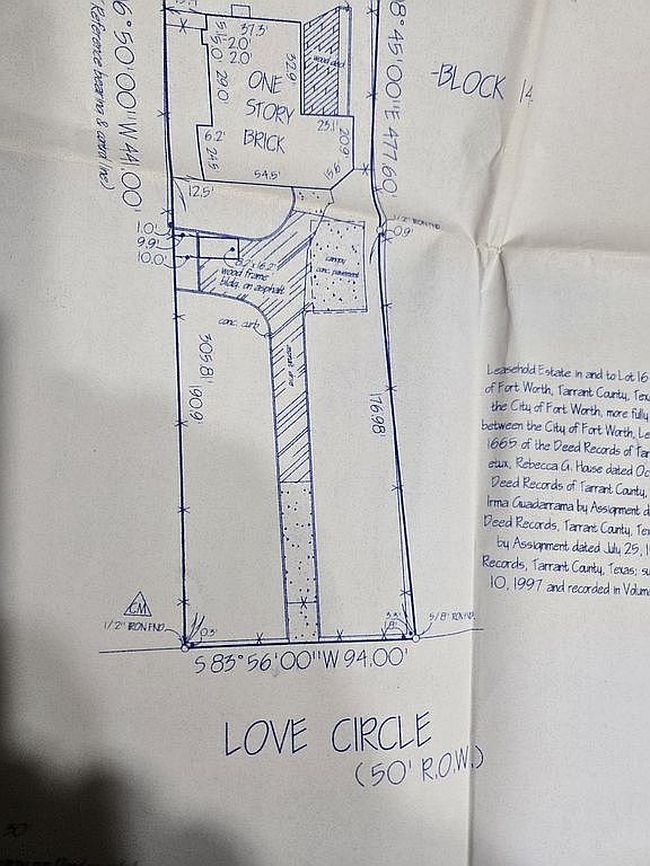 6°50'00"W 441.00'
(Reference bearing & control line)
37.3'
5.5'
2.0'
5.0'
2.0'
29.0'
32.9'
wood deck
8°45'00"E 477.60'
-BLOCK 14
ONE
STORY
BRICK
23.1'
20.9'
6.2'
24.5
54.5'
9.5'
12.5'
1.0'
9.9'
10.0'
1/2" IRON FND.
0.9'
wood frame
bldg. on asphalt
canopy
conc. pavement
conc. curb
305.81'
190.9'
176.98'
Leasehold Estate in and to Lot 16
of Fort Worth, Tarrant County, Tex
the City of Fort Worth, more fully
between the City of Fort Worth, Le
1665 of the Deed Records of Tar
etux, Rebecca G. House dated Oc
Deed Records of Tarrant County,
Irma Guadarrama by Assignment d
Deed Records, Tarrant County, Tex
by Assignment dated July 25, 1
Records, Tarrant County, Texas; su
10, 1997 and recorded in Volum
CM
1/2" IRON FND.
0.3'
3.3'
5/8" IRON FND.
S 83°56'00"W 94.00'
LOVE CIRCLE
(50' R.O.W.)